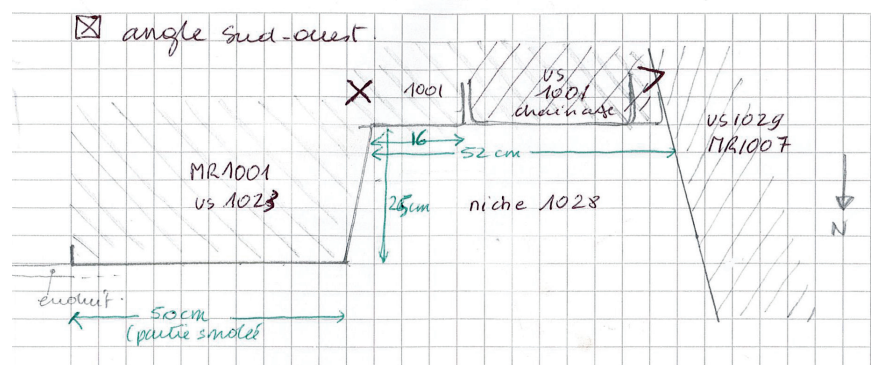 angle sud-ouest.
1001
US
1001
chainage
US1029
MR1007
16
52 cm
MR1001
US 1023
25cm
niche 1028
N
enduit.
50cm
(partie smolée